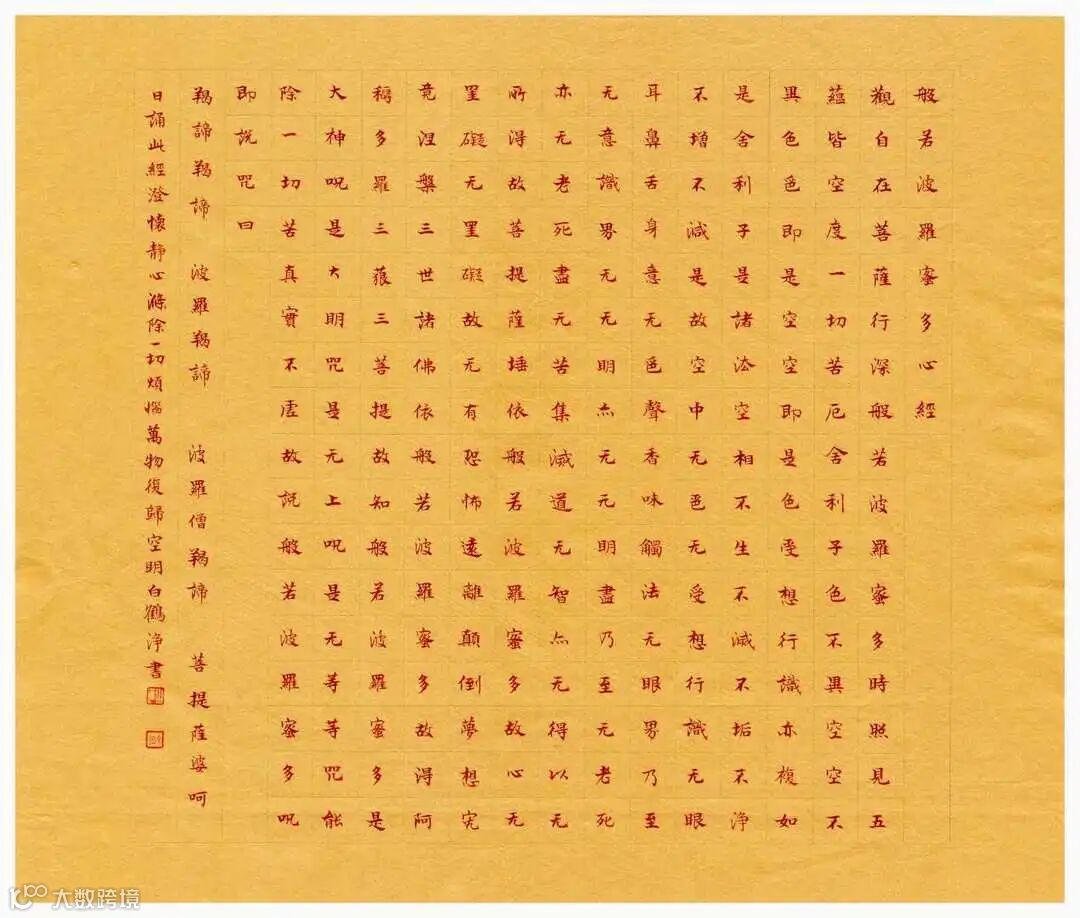 般若波羅蜜多心經
觀自在菩薩行深般若波羅蜜多時照見五
蘊皆空度一切苦厄舍利子色不異空空不
異色色即是空空即是色受想行識亦複如
是舍利子是諸法空相不生不滅不垢不淨
不增不減是故空中无色无受想行識无眼
耳鼻舌身意无色聲香味觸法无眼界乃至
无意識界无无明亦无无明盡乃至无老死
亦无老死盡无苦集滅道无智亦无得以无
所得故菩提薩埵依般若波羅蜜多故心无
罣礙无罣礙故无有恐怖遠離顛倒夢想究
竟涅槃三世諸佛依般若波羅蜜多故得阿
耨多羅三藐三菩提故知般若波羅蜜多是
大神咒是大明咒是无上咒是无等等咒能
除一切苦真實不虛故說般若波羅蜜多咒
即說咒曰
羯諦羯諦 波羅羯諦 波羅僧羯諦 菩提薩婆呵
日誦此經澄懷靜心滌除一切煩惱萬物復歸空明白鶴淨書
大数跨境